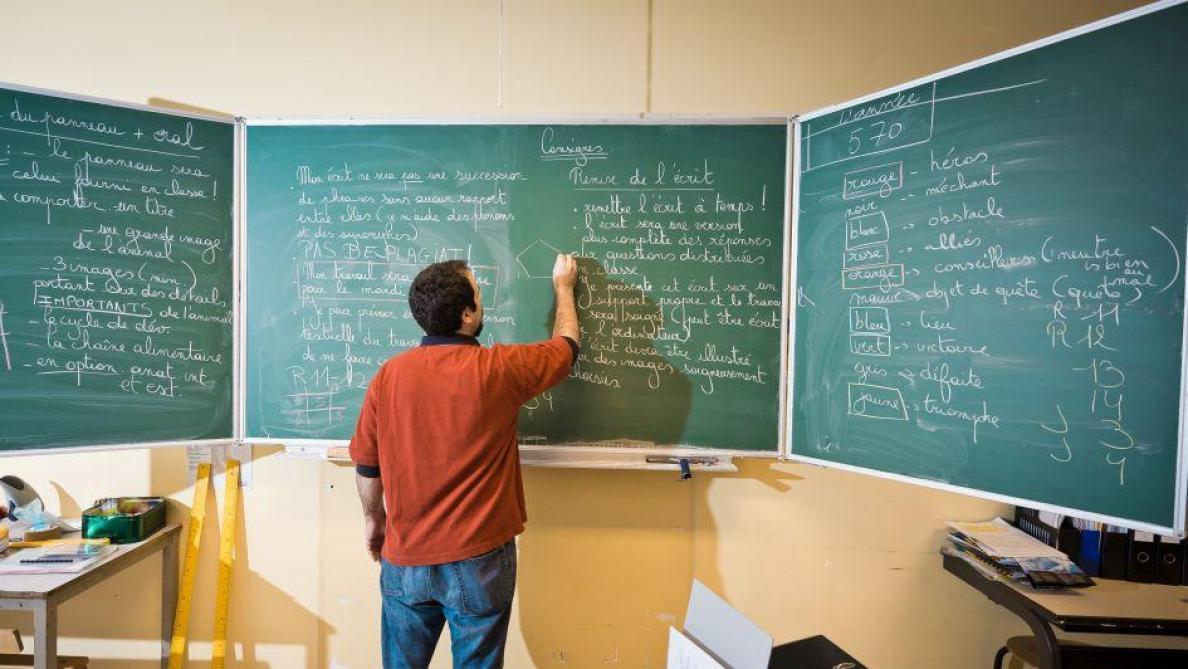 du panneau + oral
: - le panneau sera
celui fourni en classe !
comporter - un titre
- une grande image
de l'animal
- 3 images (min.)
portant sur des détails
IMPORTANTS de l'animal
- le cycle de dév.
- la chaîne alimentaire
- en option anat. int
et est.
Consignes
. Mon écrit ne sera pas une succession
de phrases sans aucun rapport
entre elles (je m'aide des pronoms
et des synonymes)
. PAS DE PLAGIAT !
. Mon travail sera
pour le mardi
. Je peux
textuelle du travail
de ne faire
R11
Remise de l'écrit
. remettre l'écrit à temps !
. l'écrit sera une version
plus complète des réponses
aux questions distribuées
en classe
Je présente cet écrit sur un
support propre et le travail
sera soigné (peut être écrit
à l'ordinateur)
L'écrit devra être illustré
par des images soigneusement
choisies
34
L'année
570
rouge - héros
noir - méchant
blanc -> obstacle
rose -> alliés
orange -> conseillers (neutre
bien
au mal)
mauve -> objet de quête (quête)
bleu -> lieu
vert -> victoire
gris -> défaite
jaune -> triomphe
R-11
R 12
- 13
14
J 3
J 4